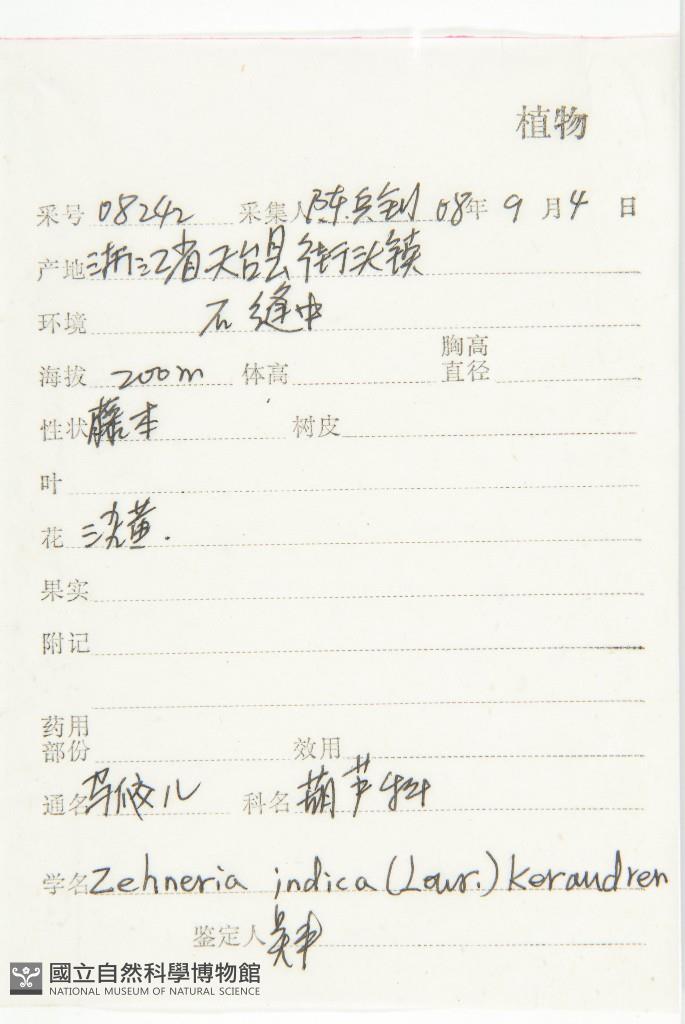 植物
采号 08242 采集人 陈兵钊 08年 9月 4日
产地 浙江省天台县街头镇
环境 石缝中
海拔 200m 体高 胸高直径
性状 藤本 树皮
叶
花 淡黄.
果实
附记
药用部份 效用
通名 马㼎儿 科名 葫芦科
学名 Zehneria indica (Lour.) Keraudren
鉴定人
國立自然科學博物館
NATIONAL MUSEUM OF NATURAL SCIENCE